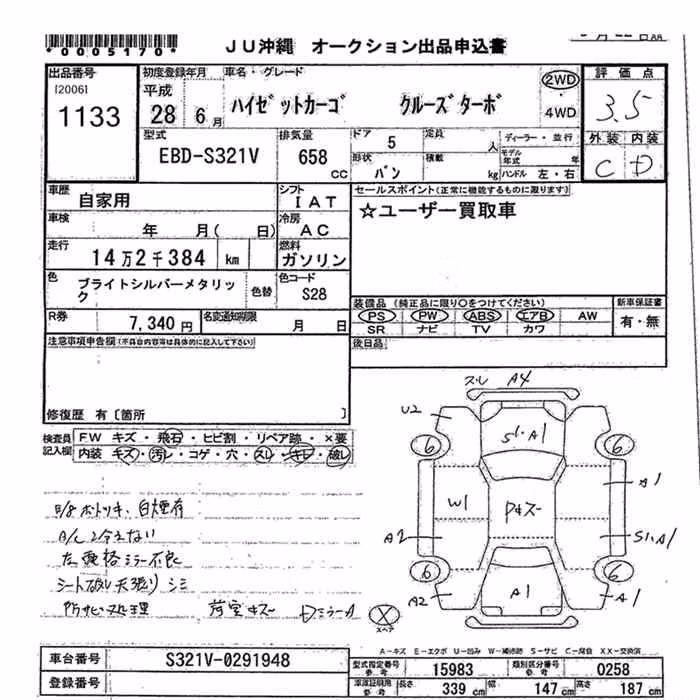 *0005170*
JU沖縄 オークション出品申込書
出品番号 初度登録年月 車名・グレード 2WD 評価点
[2006] 平成
1133 28 6月 ハイゼットカーゴ クルーズターボ 4WD 3.5
型式 排気量 ドア 5 定員 人 ディーラー・並行 外装 内装
EBD-S321V 658 CC 形状 バン 積載 kg モデル年式 年 C D
ハンドル 左・右
車歴 自家用 シフト IAT セールスポイント(正常に機能するものに限ります)
車検 年 月( 日) 冷房 AC ☆ユーザー買取車
走行 14万2千384 km 燃料 ガソリン
色 ブライトシルバーメタリック 色替 色コード S28
装備品 (純正品に限り○をつけてください) 新車保証書
R券 7,340円 名変通知期限 月 日 PS PW ABS エアB AW 有・無
SR ナビ TV カワ
注意事項申告欄(不具合内容等は具体的に記入して下さい) 後日品
修復歴 有〔箇所 〕
検査員記入欄 FW キズ・飛石・ヒビ割・リペア跡・×要
内装 キズ・汚レ・コゲ・穴・スレ・キレ・破レ
スレ A4
U2 S1.A1
6 6
W1 Pキズー A1
A2 S1.A1
6 6
A2 A1 A1
白煙有
A/C 冷えない
ミラー不良
シート破レ 天張り シミ
防サビ処理 荷室キズー Dミラー A
X スペア
A-キズ E-エクボ U-凹み W-補修跡 S-サビ C-腐食 XX-交換済
車台番号 S321V-0291948 型式指定番号 参考 15983 類別区分番号 参考 0258
登録番号 車庫証明用 参考 長さ 339 cm 幅 147 cm 高さ 187 cm